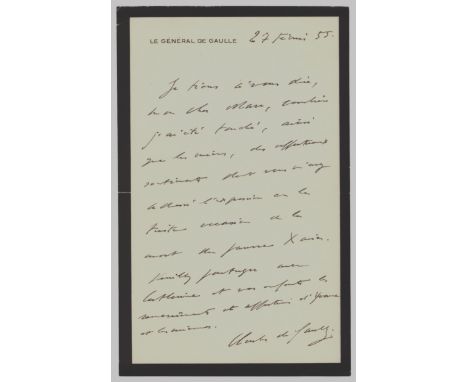 LE GÉNÉRAL DE GAULLE
27 février 55.
Je tiens à vous dire,
mon cher Marc, combien
j'ai été touché, ainsi
que les miens, des affectueux
sentiments dont vous m'avez
adressé l'expression en la
triste occasion de la
mort du pauvre Xavier.
Veuillez partager avec
Catherine et vos enfants les
remerciements et affections d'Yvonne
et les miennes.
Charles de Gaulle.